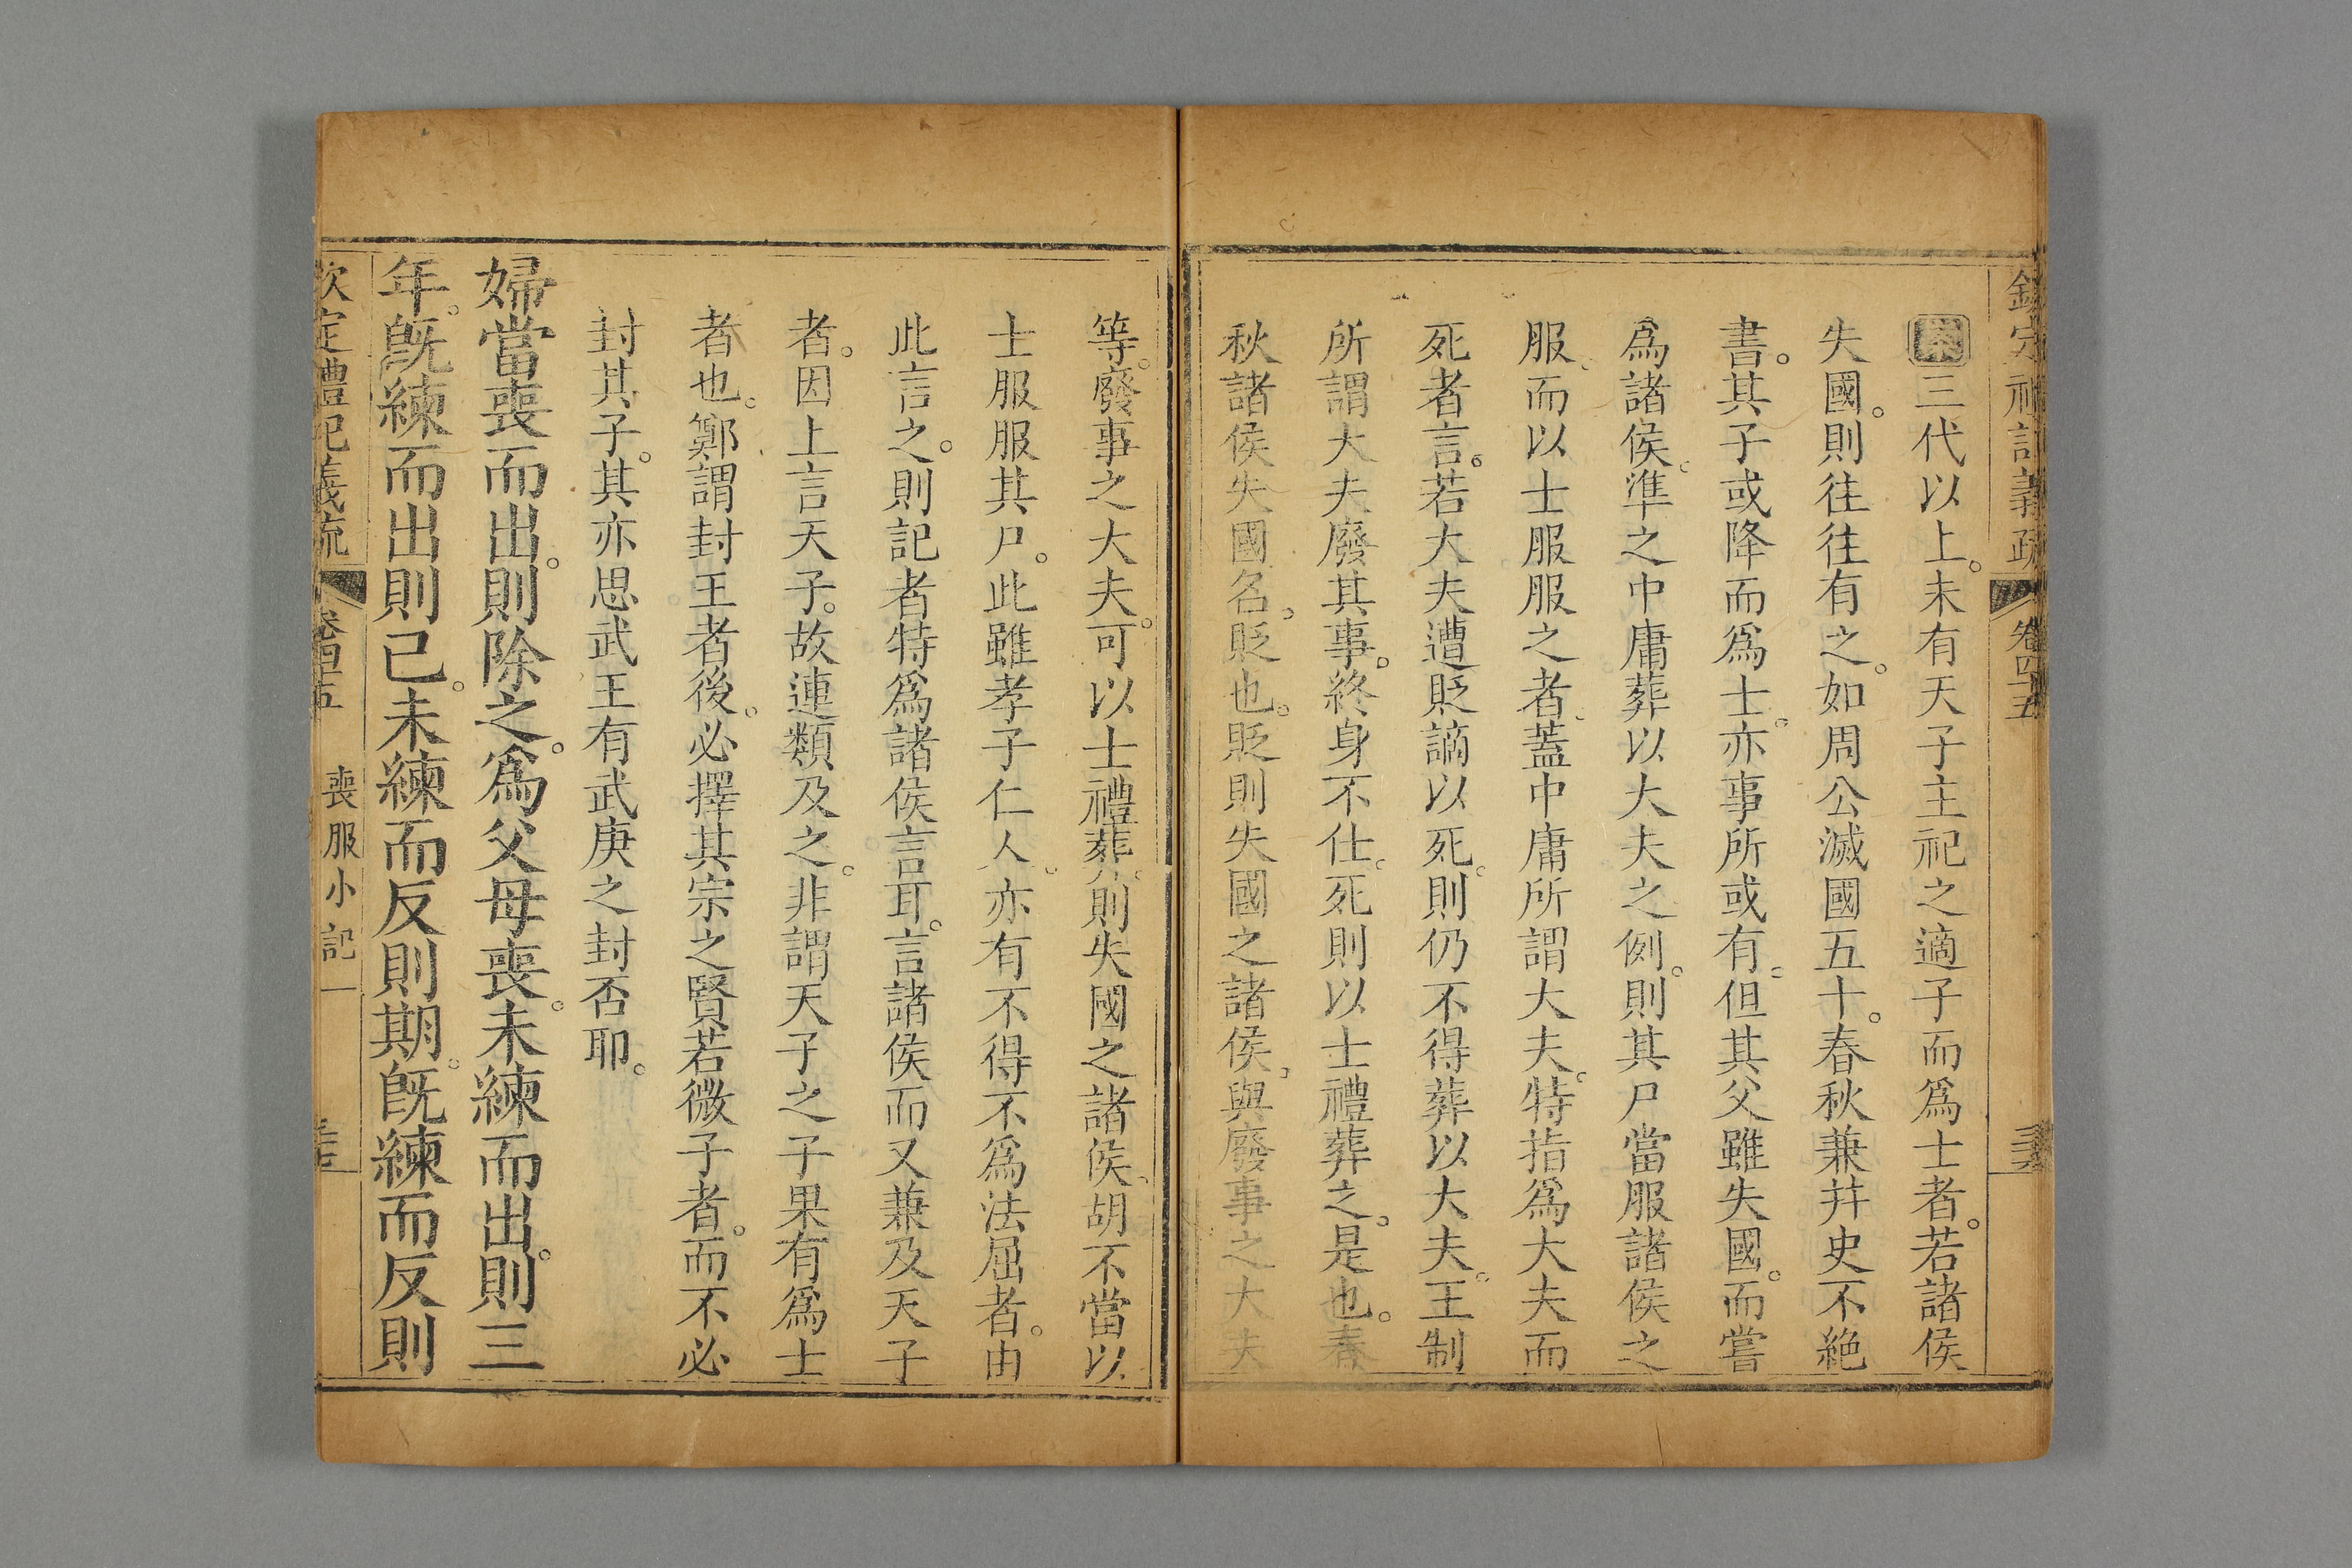 欽定禮記義疏 卷四十五
案三代以上。未有天子主祀之適子而爲士者。若諸侯
失國。則往往有之。如周公滅國五十。春秋兼并史不絶
書。其子或降而爲士。亦事所或有。但其父雖失國。而嘗
爲諸侯。準之中庸葬以大夫之例。則其尸當服諸侯之
服、而以士服服之者、蓋中庸所謂大夫。特指爲大夫而
死者言。若大夫遭貶謫以死。則仍不得葬以大夫。王制
所謂大夫廢其事。終身不仕。死則以士禮葬之。是也。春
秋諸侯失國名。貶也。貶則失國之諸侯、與廢事之大夫
等。廢事之大夫。可以士禮葬。則失國之諸侯、胡不當以
士服服其尸。此雖孝子仁人。亦有不得不爲法屈者。由
此言之。則記者特爲諸侯言耳。言諸侯而又兼及天子
者。因上言天子。故連類及之。非謂天子之子果有爲士
者也。鄭謂封王者後。必擇其宗之賢若微子者。而不必
封其子。其亦思武王有武庚之封否耶。
婦當喪而出。則除之。爲父母喪。未練而出。則三
年。旣練而出則已。未練而反則期。旣練而反則
欽定禮記義疏 卷四十五 喪服小記